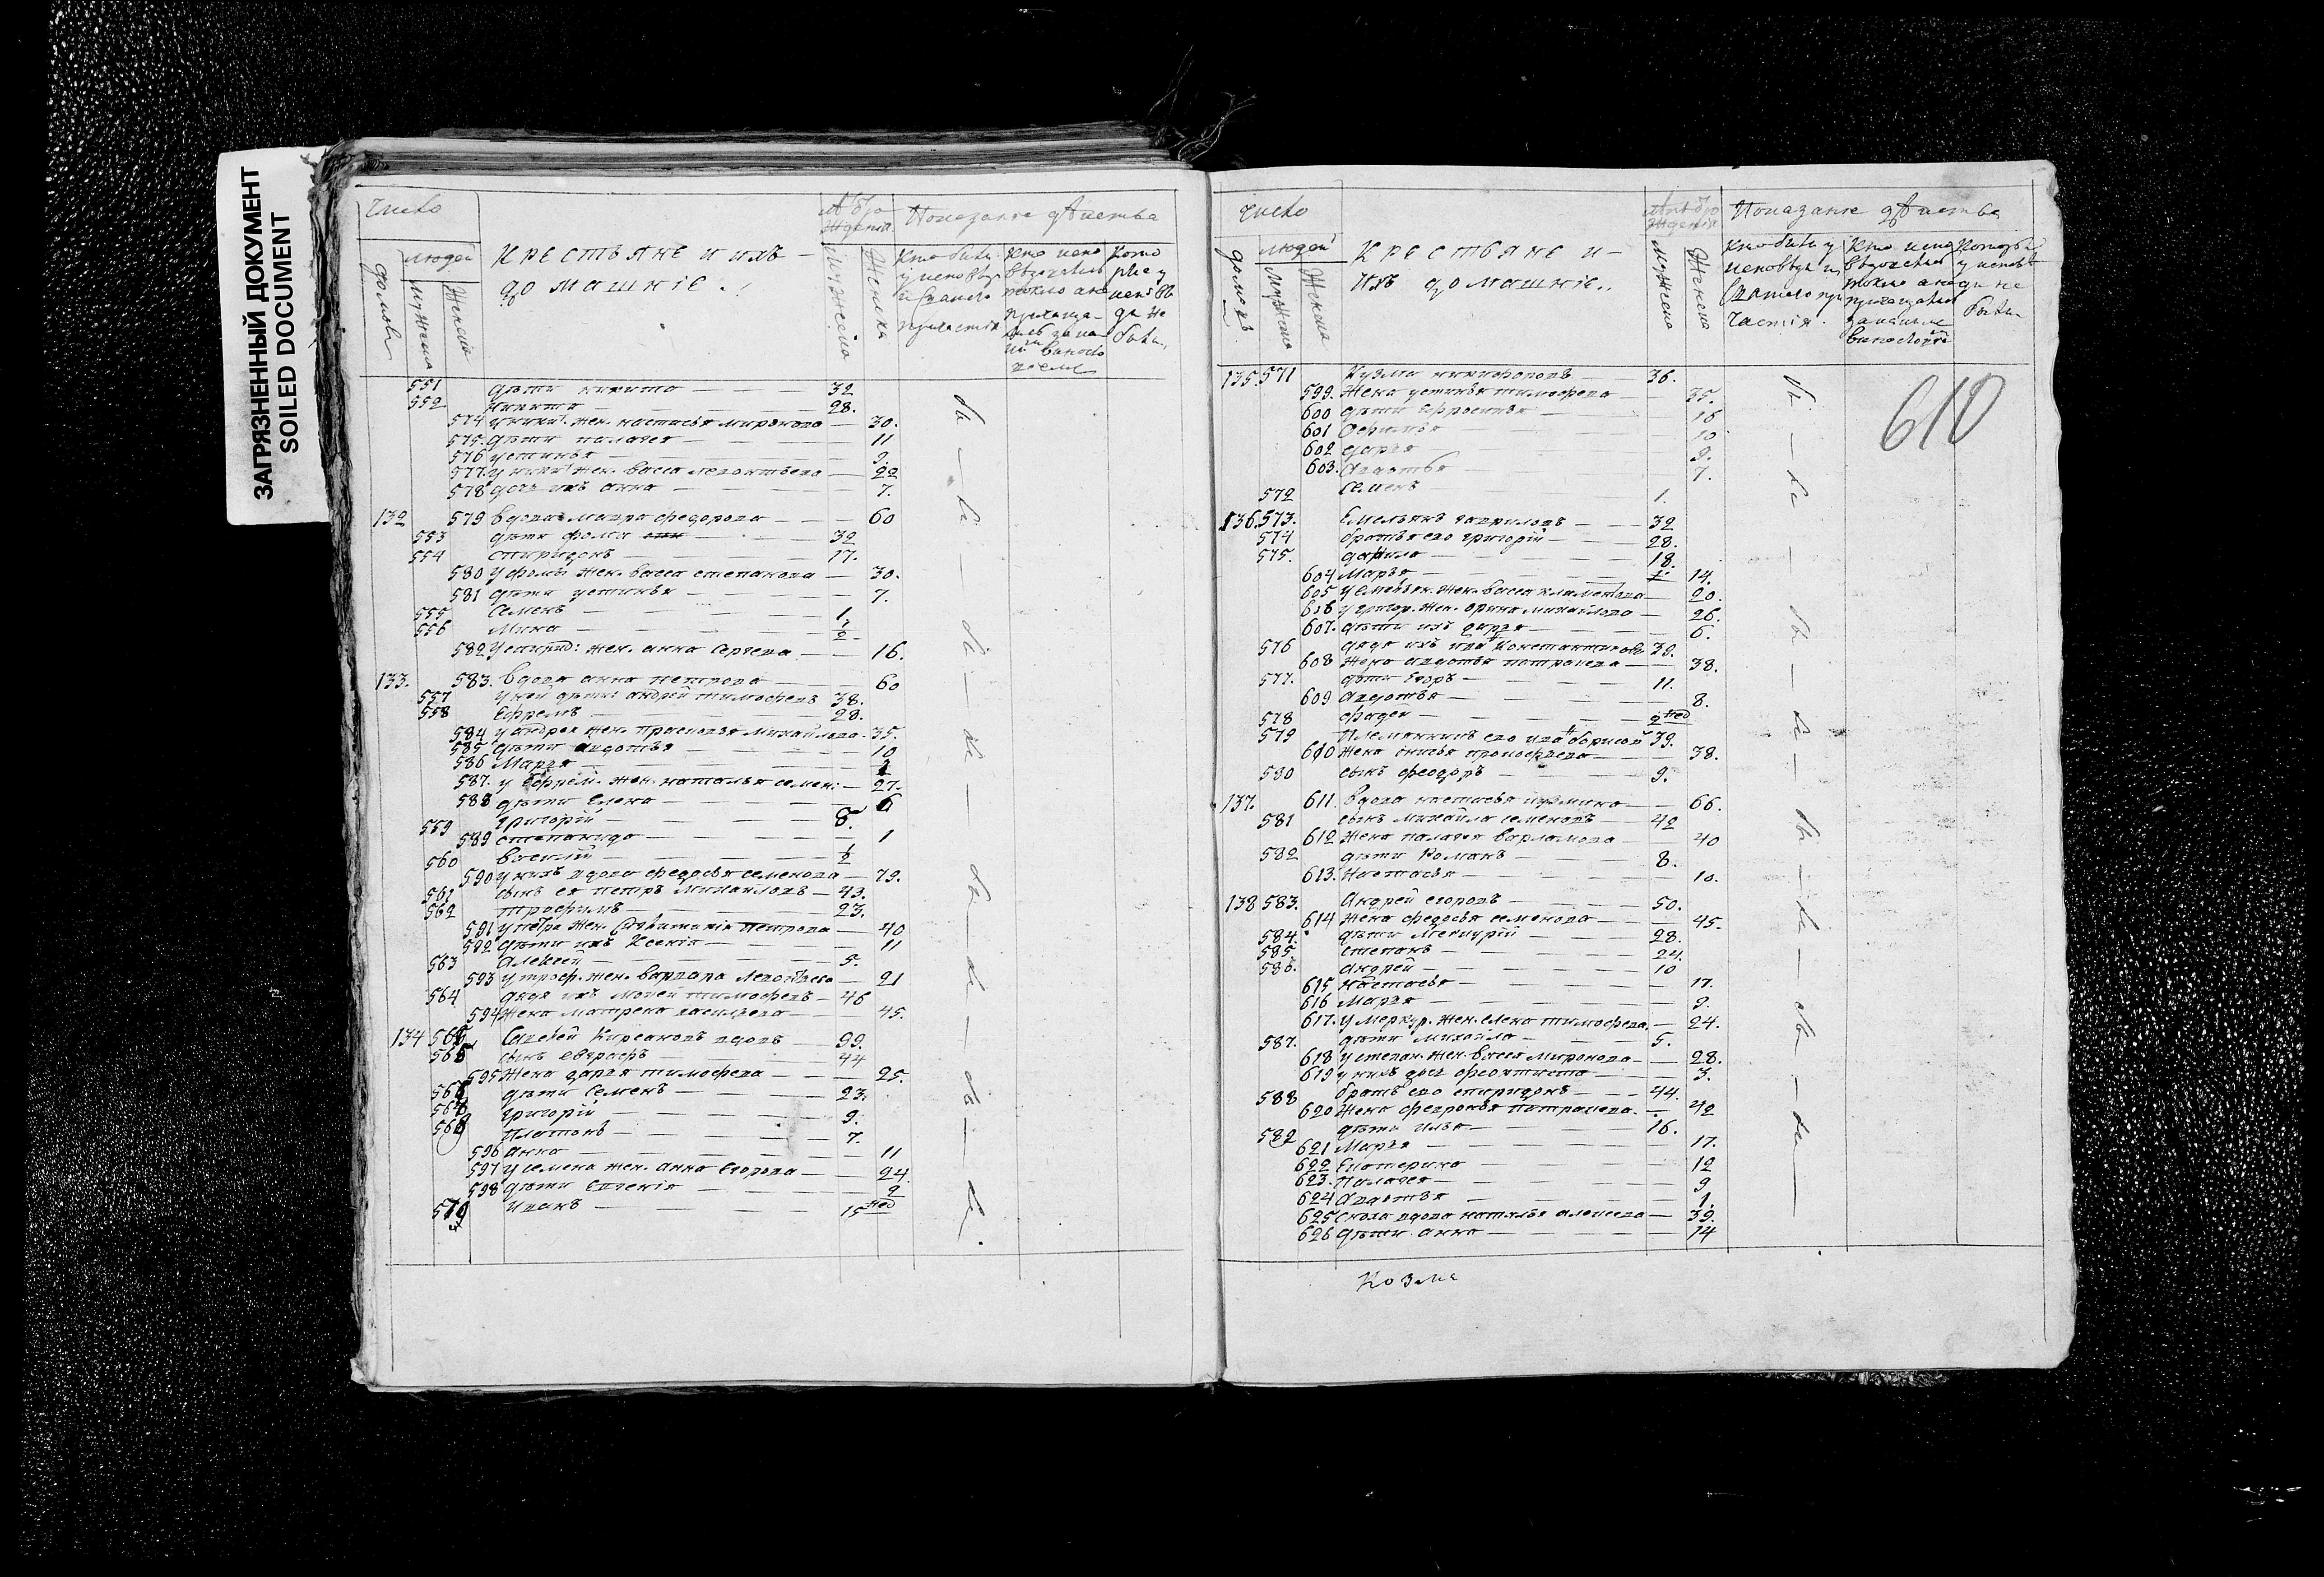 ЗАГРЯЗНЕННЫЙ ДОКУМЕНТ
SOILED DOCUMENT
Число
людей
домовъ
мужска
женска
крестьяне и ихъ
домашніе
Мужеска
Женска
Показаніе действа
551 дѣти никита 32
552 никита 28.
574 у никит. жен. настасья миронова 30.
575. дѣти палагея 11
576 устинья 9.
577. у никит. жен. васса леонтьева 22
578 дочь ихъ анна 7.
132 579 вдова мавра федорова 60
553 дѣти фома 32
554 спиридонъ 17.
580 у фомы жен. васса степанова 30.
581 дѣти устинья 7.
555 Семенъ 1
556 Мина 1/2
582 У спирид: жен. анна Сергева 16.
133. 583. вдова анна петрова 60
557 у ней дѣти: андрей тимофеевъ 38.
558 Ефремъ 28.
584 у андрея жен. прасковья михайлова 35.
585 дѣти авдотья 10
586 Марья
587. у Ефрем. жен. наталья семен: 27.
588 дѣти Елена 6
559 григорій 8.
589 степанида 1
560 василій 1/2
590 у нихъ вдова федосья семенова 79.
561 сынъ ея петръ михайловъ 43.
562 трофимъ 23.
591 у петра жен. петрова 40
592 дѣти ихъ Ксенія 11
563 Алексей 5.
593 у троф. жен. варвара леонтьева 21
564 дядя ихъ мосей тимофеевъ 46
594 жена матрена васильева 45.
134 565 Савелей Кирсановъ вдовъ 99.
566 сынъ евграфъ 44
595 Жена дарья тимофеева 25.
дѣти Семенъ 23.
григорій 9.
Платонъ 7.
596 анна 11
597 у семена жен. анна Егорова 24.
598 дѣти Евгенія 2
570 Иванъ 15 нед
Число
людей
домовъ
мужска
женска
крестьяне и
ихъ домашніе
Мужеска
Женска
Показаніе действа
610
135. 571 Кузма никифоровъ 36.
599. Жена устинья тимофеева 35.
600 дѣти Ефросинья 16
601 Офимья 10
602 дарья 9.
603. Агафья 7.
572 Семенъ 1.
136. 573. Емельянъ гавриловъ 32
574 братья его григорій 28.
575. данила 18.
604 Марья 14.
605 у Емельян. жен. васса климентова 20.
606 у григор. жен. орина михайлова 26.
607. дѣти ихъ дарья 6.
576 дядя ихъ ива Константиновъ 39.
608 жена авдотья патракеева 38.
577. дѣти Егоръ 11.
609 Авдотья 8.
578 фадей 2 нед
579 Племянникъ его ива борисов 39.
610 жена анисья прокофьева 38.
580 сынъ феодоръ 9.
137. 611. вдова настасья кузмина 66.
581 сынъ михайла семеновъ 42
612 жена палагея варламова 40
582 дѣти Романъ 8.
613. Настасья 10.
138 583. Андрей егоровъ 50.
614 Жена федосья семенова 45.
584. дѣти Меркурій 28.
585 степанъ 24.
586. андрей 10
615 настасья 17.
616 Марья 9.
617. у меркур. жен. елена тимофеева. 24.
587. дѣти михайла 5.
618 у степан. жен. васса миронова 28.
619 у нихъ доч феоктиста 3.
588 братъ его спиридонъ 44.
620 Жена февронья патракеева. 42
582 дѣти илья 16.
621 Марья 17.
622 Екатерина 12
623. Палагея 9
624 Авдотья 1.
625 Сноха вдова наталья алексеева 39.
626 дѣти анна 14
Козма